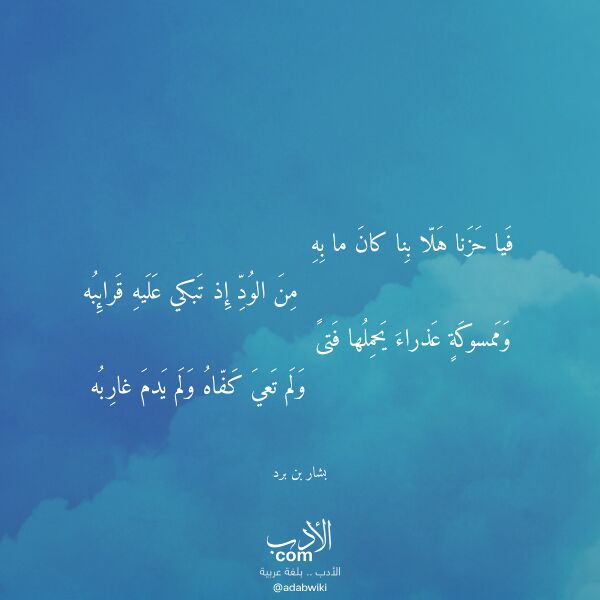 فَيا حَزَنا هَلّا بِنا كانَ ما بِهِ
مِنَ الوُدِّ إِذ تَبكي عَلَيهِ قَرائِبُه
وَمَمسوكَةٍ عَذراءَ يَحمِلُها فَتىً
وَلَم تَعيَ كَفّاهُ وَلَم يَدمَ غارِبُه
بشار بن برد
الأدب
com
الأدب .. بلغة عربية
@adabwiki